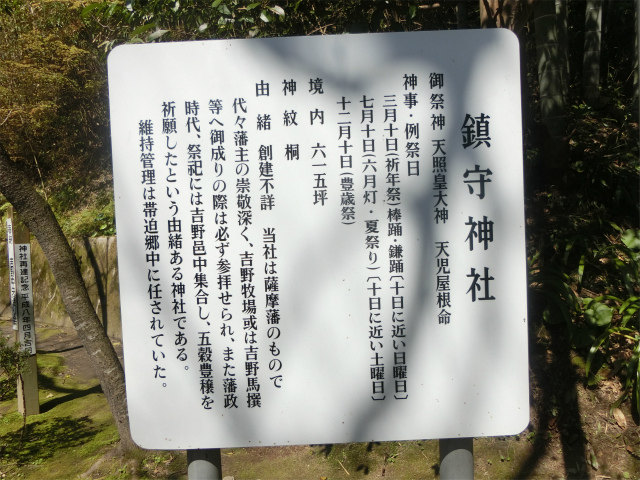 鎮守神社
御祭神 天照皇大神 天児屋根命
神事・例祭日
三月十日(祈年祭)棒踊・鎌踊〔十日に近い日曜日〕
七月十日(六月灯・夏祭り)〔十日に近い土曜日〕
十二月十日(豊歳祭)
境内 六一五坪
神紋 桐
由緒 創建不詳 当社は薩摩藩のもので
代々藩主の崇敬深く、吉野牧場或は吉野馬撰
等へ御成りの際は必ず参拝せられ、また藩政
時代、祭祀には吉野邑中集合し、五穀豊穣を
祈願したという由緒ある神社である。
維持管理は帯迫郷中に任されていた。
神社再建記念 平成八年四月吉日